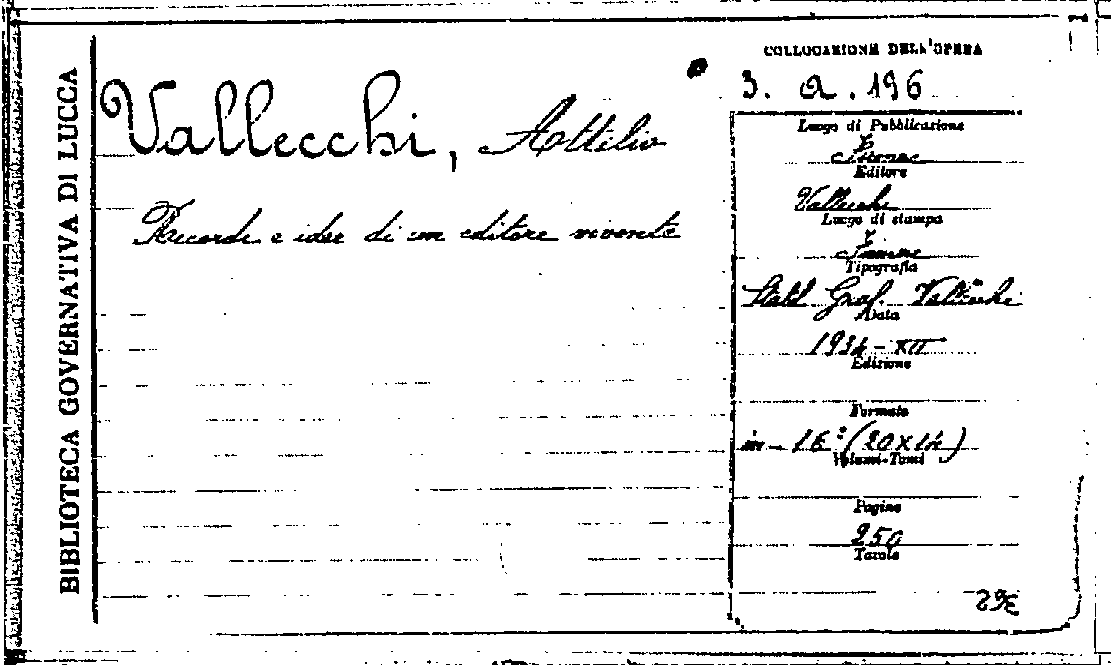 BIBLIOTECA GOVERNATIVA DI LUCCA
Vallecchi, Attilio
Ricordi e idee di un editore vivente
COLLOCAZIONE DELL'OPERA
3. a. 196
Luogo di Pubblicazione
Firenze
Editore
Vallecchi
Luogo di stampa
Firenze
Tipografia
Stabil Graf. Vallecchi
Data
1934-XII
Edizione
Formato
in-16º (20x14)
Volumi-Tomi
Pagine
250
Tavole